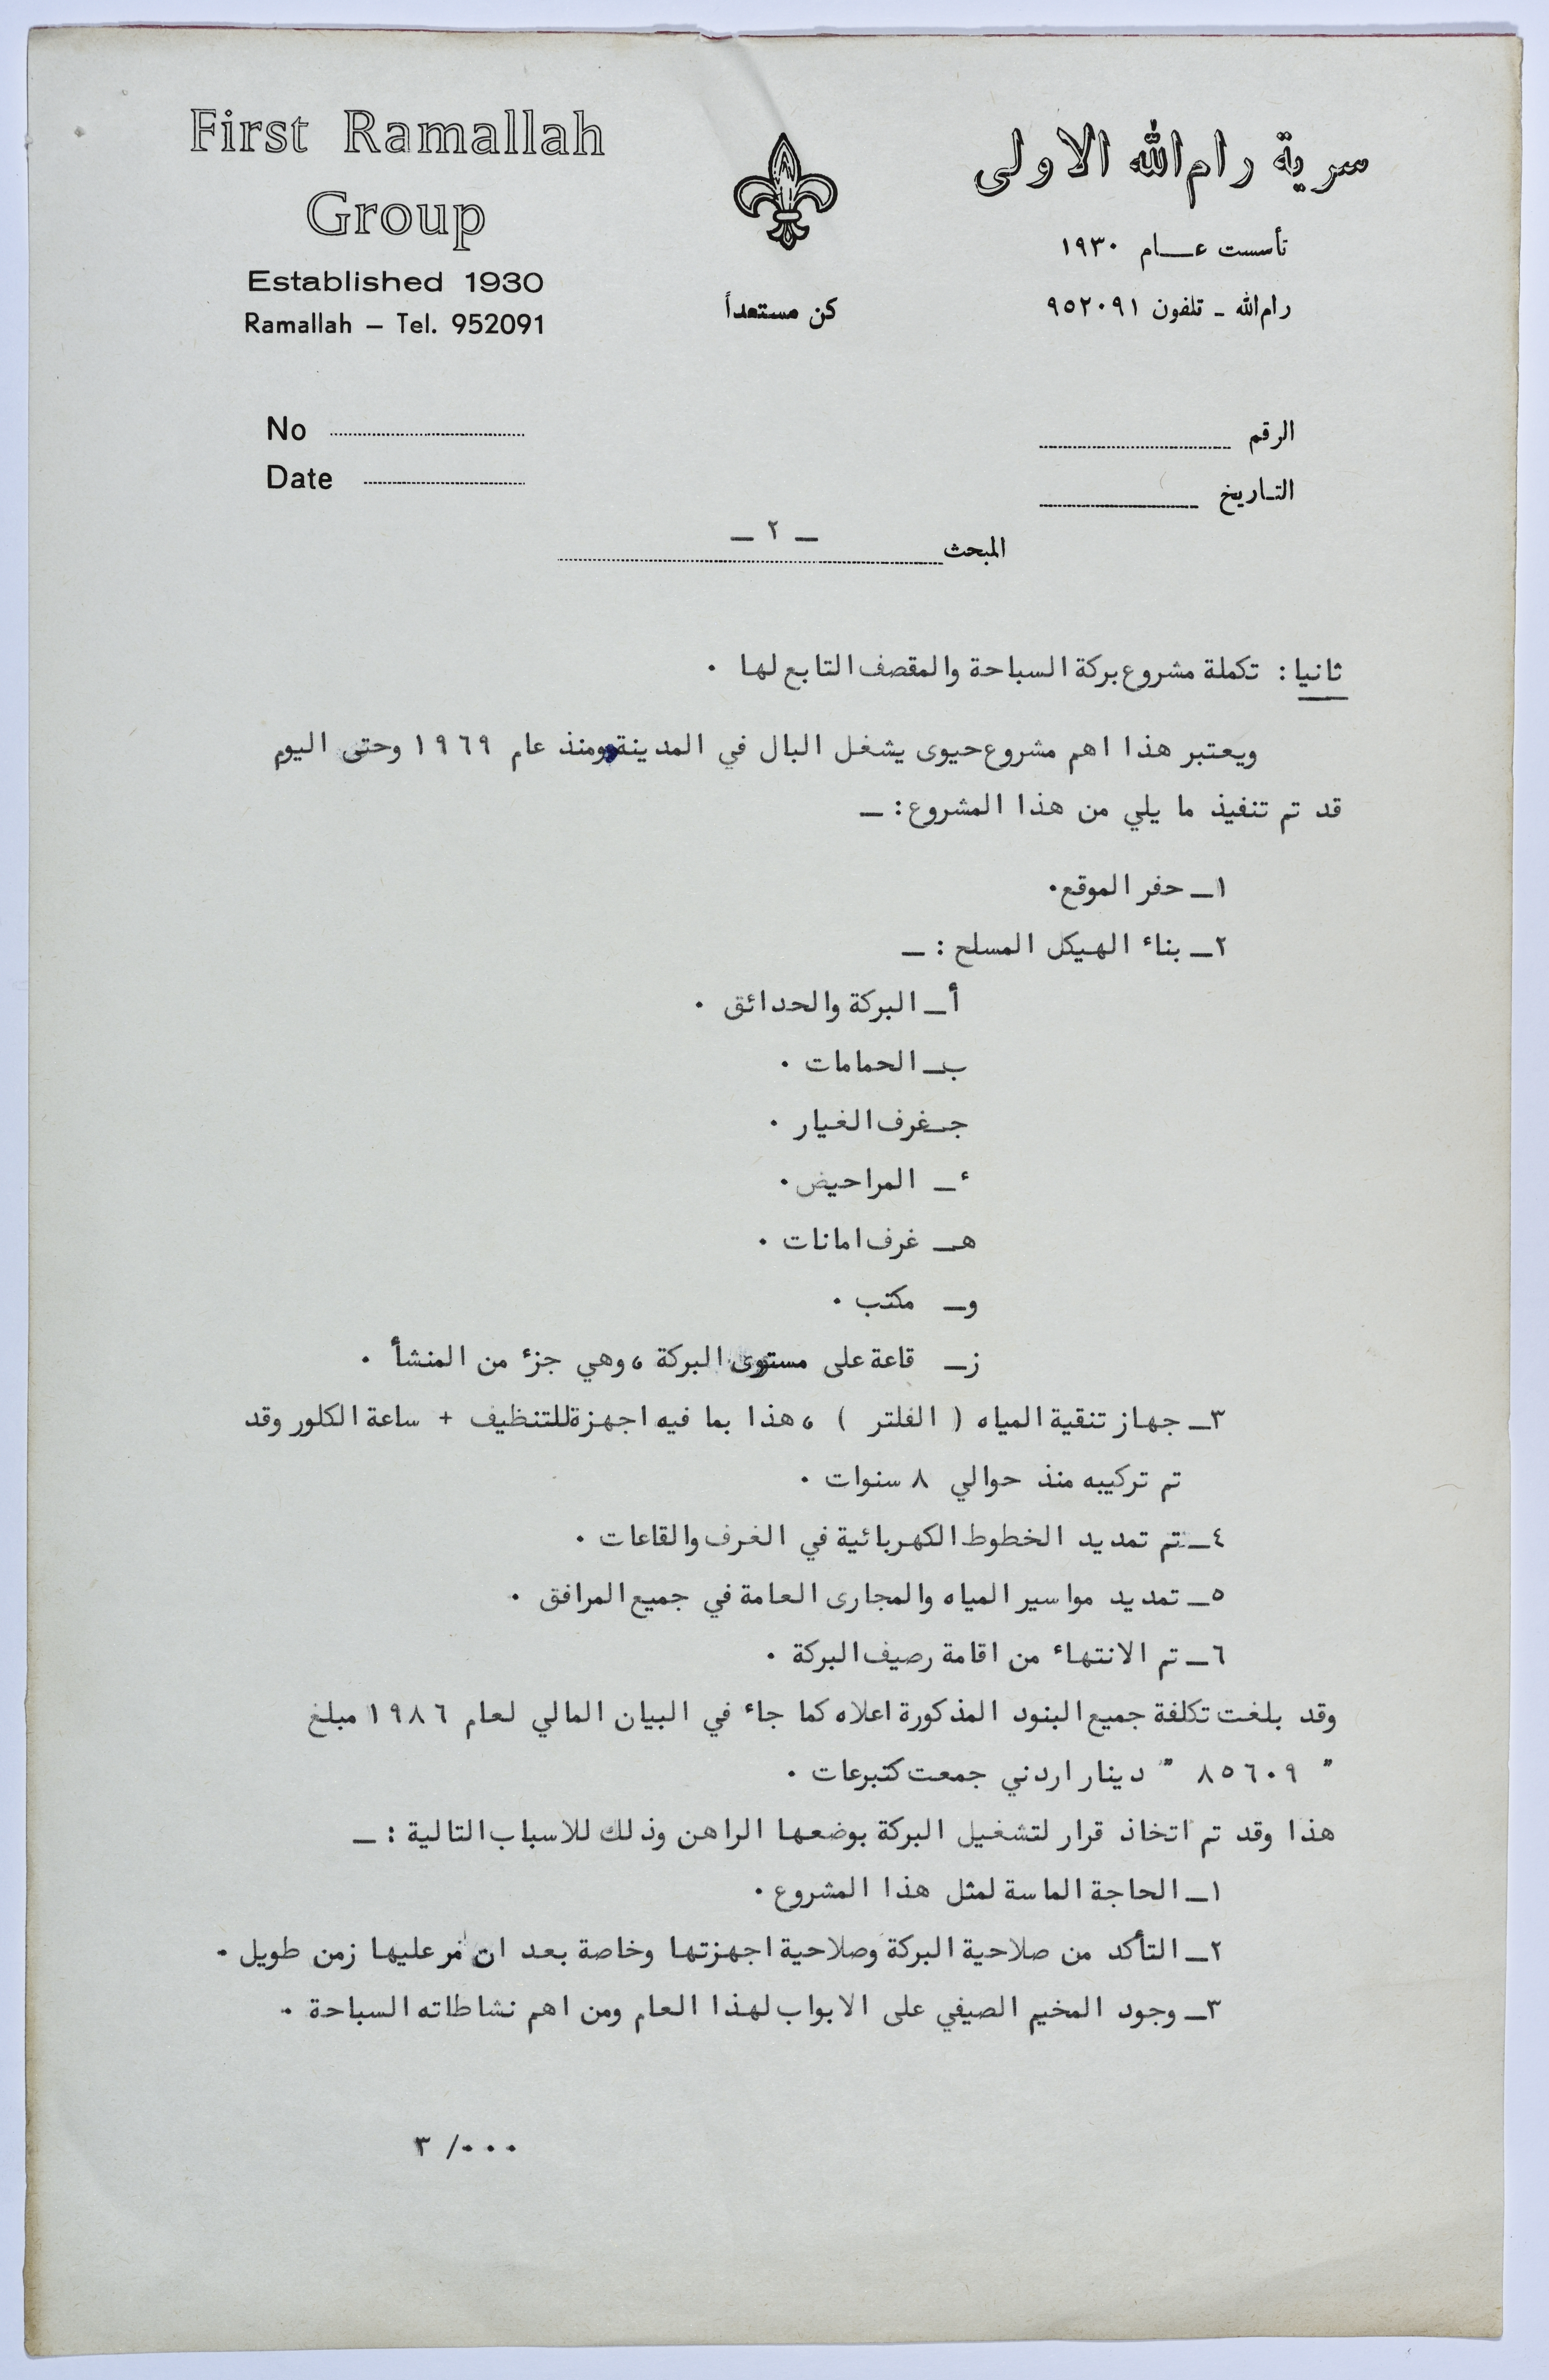 First Ramallah
Group
Established 1930
Ramallah – Tel. 952091
كن مستعداً
سرية رام الله الاولى
تأسست عـــام ١٩٣٠
رام الله ـ تلفون ٩٥٢٠٩١
No
Date
الرقم
التـاريخ
ـ ٢ ـ
المبحث
ثانيا : تكملة مشروع بركة السباحة والمقصف التابع لها .
ويعتبر هذا اهم مشروع حيوى يشغل البال في المدينة ومنذ عام ١٩٦٩ وحتى اليوم
قد تم تنفيذ ما يلي من هذا المشروع : ـ
١ـ حفر الموقع.
٢ـ بناء الهيكل المسلح : ـ
أـ البركة والحدائق .
بـ الحمامات .
جـ غرف الغيار .
ءـ المراحيض .
هـ غرف امانات .
وـ مكتب .
زـ قاعة على مستوى البركة ، وهي جزء من المنشأ .
٣ـ جهاز تنقية المياه ( الفلتر ) ، هذا بما فيه اجهزة للتنظيف + ساعة الكلور وقد
تم تركيبه منذ حوالي ٨ سنوات .
٤ـ تم تمديد الخطوط الكهربائية في الغرف والقاعات .
٥ـ تمديد مواسير المياه والمجارى العامة في جميع المرافق .
٦ـ تم الانتهاء من اقامة رصيف البركة .
وقد بلغت تكلفة جميع البنود المذكورة اعلاه كما جاء في البيان المالي لعام ١٩٨٦ مبلغ
" ٨٥٦٠٩ " دينار اردني جمعت كتبرعات .
هذا وقد تم اتخاذ قرار لتشغيل البركة بوضعها الراهن وذلك للاسباب التالية : ـ
١ـ الحاجة الماسة لمثل هذا المشروع .
٢ـ التأكد من صلاحية البركة وصلاحية اجهزتها وخاصة بعد ان مر عليها زمن طويل .
٣ـ وجود المخيم الصيفي على الابواب لهذا العام ومن اهم نشاطاته السباحة .
٠٠٠/ ٣